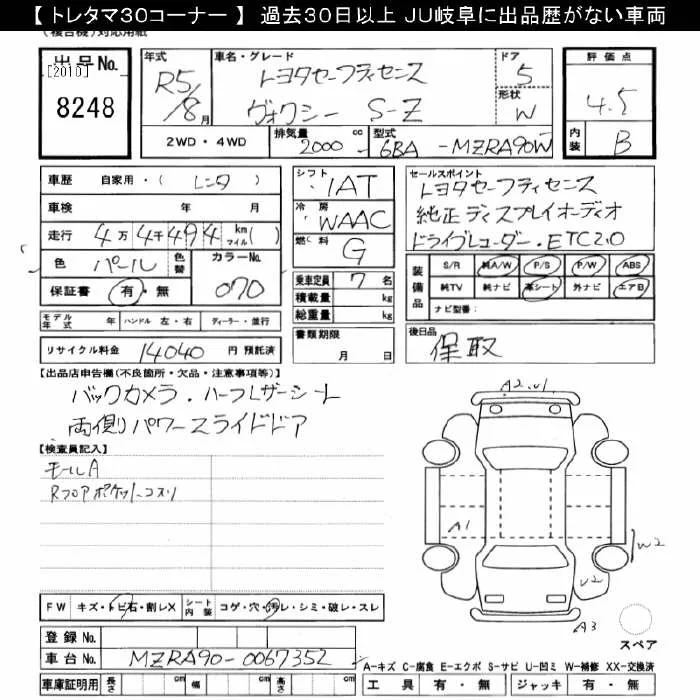 【 トレタマ30コーナー 】 過去30日以上 JU岐阜に出品歴がない車両
(複合機)対応用紙
出品No.
[2010]
8248
年式
R5/8月
車名・グレード
トヨタセーフティセンス
ヴォクシー S-Z
ドア
5
形状
W
評価点
4.5
内装
B
2WD・4WD
排気量 2000 cc
型式 6BA-MZRA90W
車歴 自家用・(レンタ)
車検 年 月
走行 4万4千494 km マイル( )
色 パール 色替 カラーNo. 070
保証書 有・無
シフト IAT
冷房 WAAC
燃料 G
乗車定員 7名
積載量 kg
総重量 kg
書類期限
月 日
セールスポイント
トヨタセーフティセンス
純正ディスプレイオーディオ
ドライブレコーダー.ETC2.0
装備品
S/R 純A/W P/S P/W ABS
純TV 純ナビ 革シート 外ナビ エアB
ナビ型番:
モデル年式 年 ハンドル 左・右 ディーラー・並行
リサイクル料金 14040 円 預託済
後日品
保取
【出品店申告欄(不良箇所・欠品・注意事項等)】
バックカメラ.ハーフレザーシート
両側パワースライドドア
【検査員記入】
モールA
Rフロアポケットコスリ
A2.U1
A1
W2
U2
A3
スペア
FW キズ・トビ石・割レX シート内装 コゲ・穴・汚レ・シミ・破レ・スレ
登録No.
車台No. MZRA90-0067352
A-キズ C-腐食 E-エクボ S-サビ U-凹ミ W-補修 XX-交換済
車庫証明用 長さ cm 幅 cm 高さ cm
工具 有・無 ジャッキ 有・無